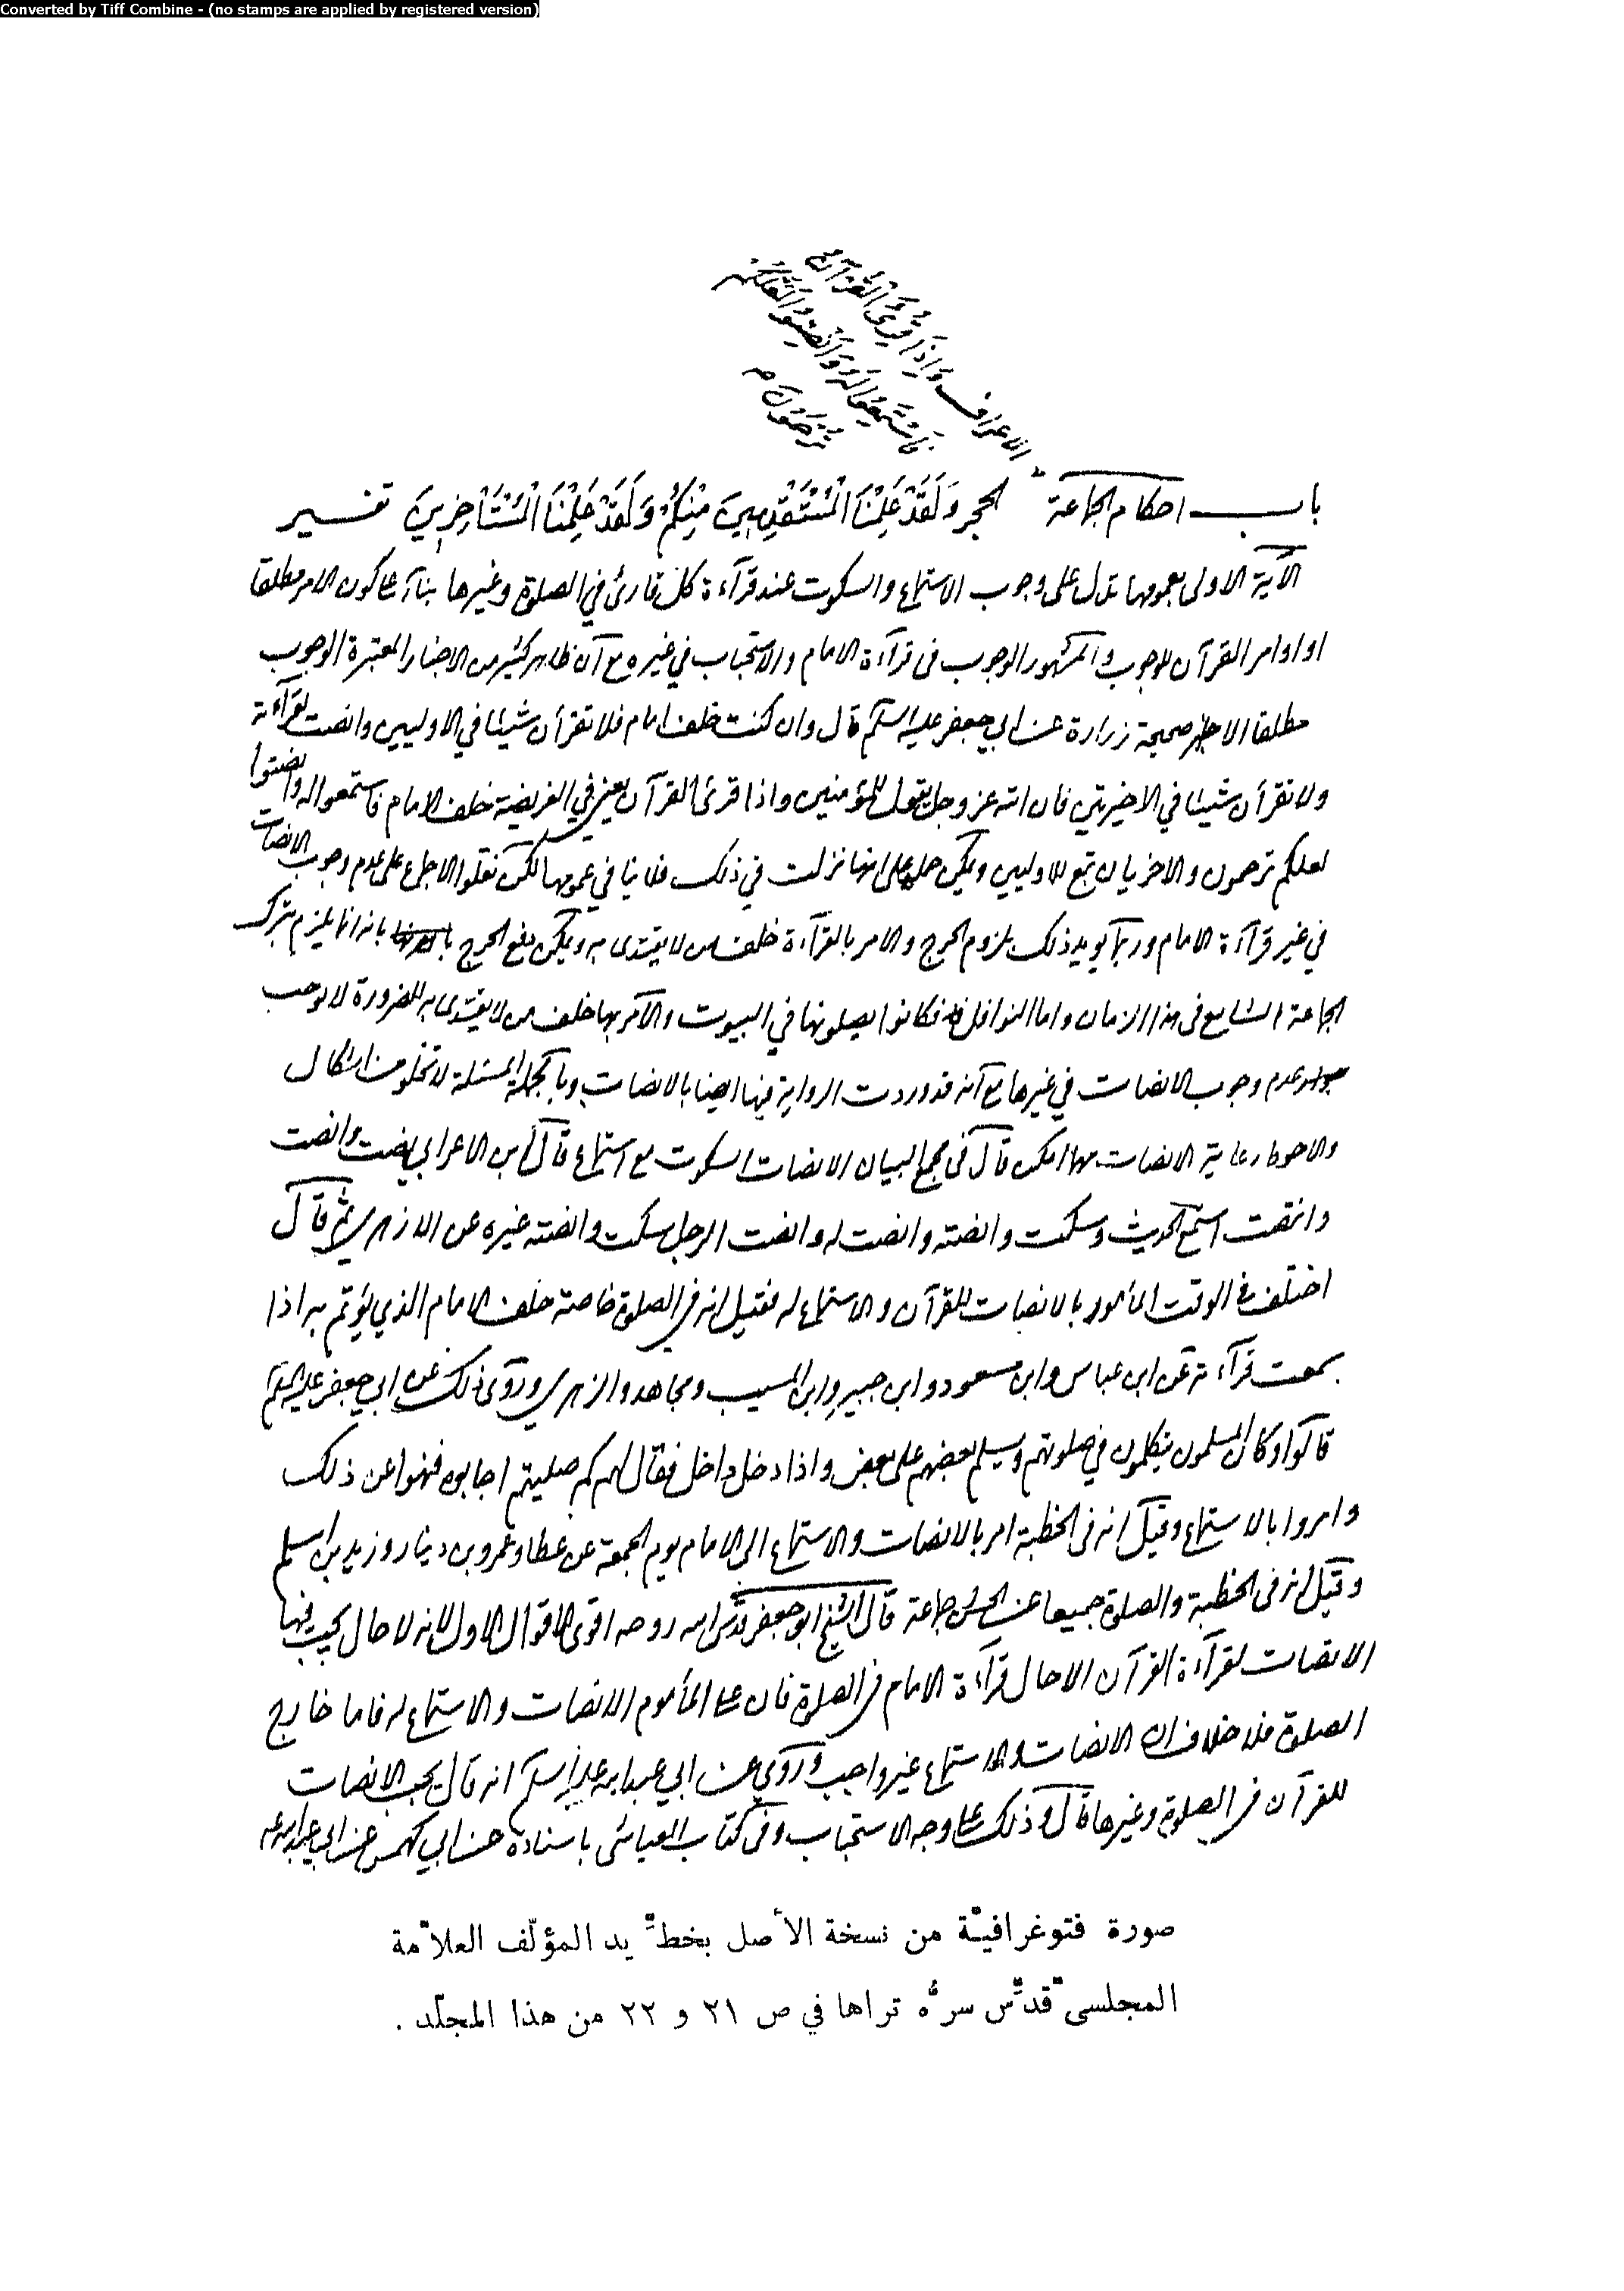 Converted by Tiff Combine - (no stamps are applied by registered version)
الاعراف وَاِذَا قُرِئَ الْقُرْآنُ
فَاسْتَمِعُوا لَهُ وَاَنْصِتُوا لَعَلَّكُمْ
تُرْحَمُونَ
باب احكام الجماعة الحجر وَلَقَدْ عَلِمْنَا الْمُسْتَقْدِمِينَ مِنْكُمْ وَلَقَدْ عَلِمْنَا الْمُسْتَأْخِرِينَ تفسير
الآية الاولى بعمومها تدل على وجوب الاستماع والسكوت عند قرآءة كل قارئ في الصلوة وغيرها بنآء على كون الامر مطلقا
او اوامر القرآن للوجوب والمشهور الوجوب فى قرآءة الامام والاستحباب في غيره مع آن ظاهر كثير من الاخبار المعتبرة الوجوب
مطلقا الا صحيحة زرارة عن ابي جعفر عليه السلم قال وان كنت خلف امام فلا تقرأن شيئا في الاوليين وانصت لقرآءته
ولا تقرأن شيئا في الاخيرتين فان الله عز وجل يقول للمؤمنين واذا قرئ القرآن يعني في الفريضة خلف الامام فاستمعوا له وانصتوا
لعلكم ترحمون والاخريان تبع للاوليين ويمكن حملها على انها نزلت في ذلك فلا ينافي عمومها لكن نقلوا الاجماع على عدم وجوب الانصات
في غير قرآءة الامام وربما يويد ذلك بلزوم الحرج والامر بالقرآءة خلف من لا يقتدى به ويمكن دفع الحرج بانه انما يلزم بترك
الجماعة الشايع فى هذا الزمان واما النوافل فكانوا يصلونها في البيوت والآمر بها خلف من لا يقتدى به للضرورة لا يوجب
عدم وجوب الانصات في غيرها مع آنه قد وردت الرواية فيها ايضا بالانصات وبالجملة المسئلة لا تخلو من اشكال
والاحوط رعاية الانصات مهما امكن قال فى مجمع البيان الانصات السكوت مع استماع قال ابن الاعرابي نصت وانصت
وانتصت استمع الحديث وسكت وانصته وانصت له وانصت الرجل سكت وانصته غيره عن الازهري ثم قال
اختلف في الوقت المأمور بالانصات للقرآن والاستماع له فقيل انه في الصلوة خاصة خلف الامام الذي يؤتم به اذا
سمعت قرآءته عن ابن عباس وابن مسعود وابن جبير وابن المسيب ومجاهد والزهري وروى ذلك عن ابي جعفر عليه السلم
قالوا وكان المسلمون يتكلمون في صلوتهم ويسلم بعضهم على بعض واذا دخل داخل فقال لهم كم صليتم اجابوه فنهوا عن ذلك
وامروا بالاستماع وقيل انه فى الخطبة امر بالانصات والاستماع الى الامام يوم الجمعة عن عطا وعمرو بن دينار وزيد بن اسلم
وقيل انه فى الخطبة والصلوة جميعا عن الحسن وجماعة قال الشيخ ابو جعفر قدس الله روحه اقوى الاقوال الاول لانه لا حال يجب فيها
الانصات لقرآءة القرآن الا حال قرآءة الامام في الصلوة فان على المأموم الانصات والاستماع له فاما خارج
الصلوة فلا خلاف ان الانصات والاستماع غير واجب وروي عن ابي عبد الله عليه السلم انه قال يجب الانصات
للقرآن في الصلوة وغيرها قال وذلك على وجه الاستحباب وفى كتاب العياشى باسناده عن ابي كهمس عن ابي عبد الله
صورة فتوغرافيّة من نسخة الأصل بخطّ يد المؤلّف العلاّمة
المجلسى قدّس سرّه تراها في ص ٢١ و ٢٢ من هذا المجلّد .